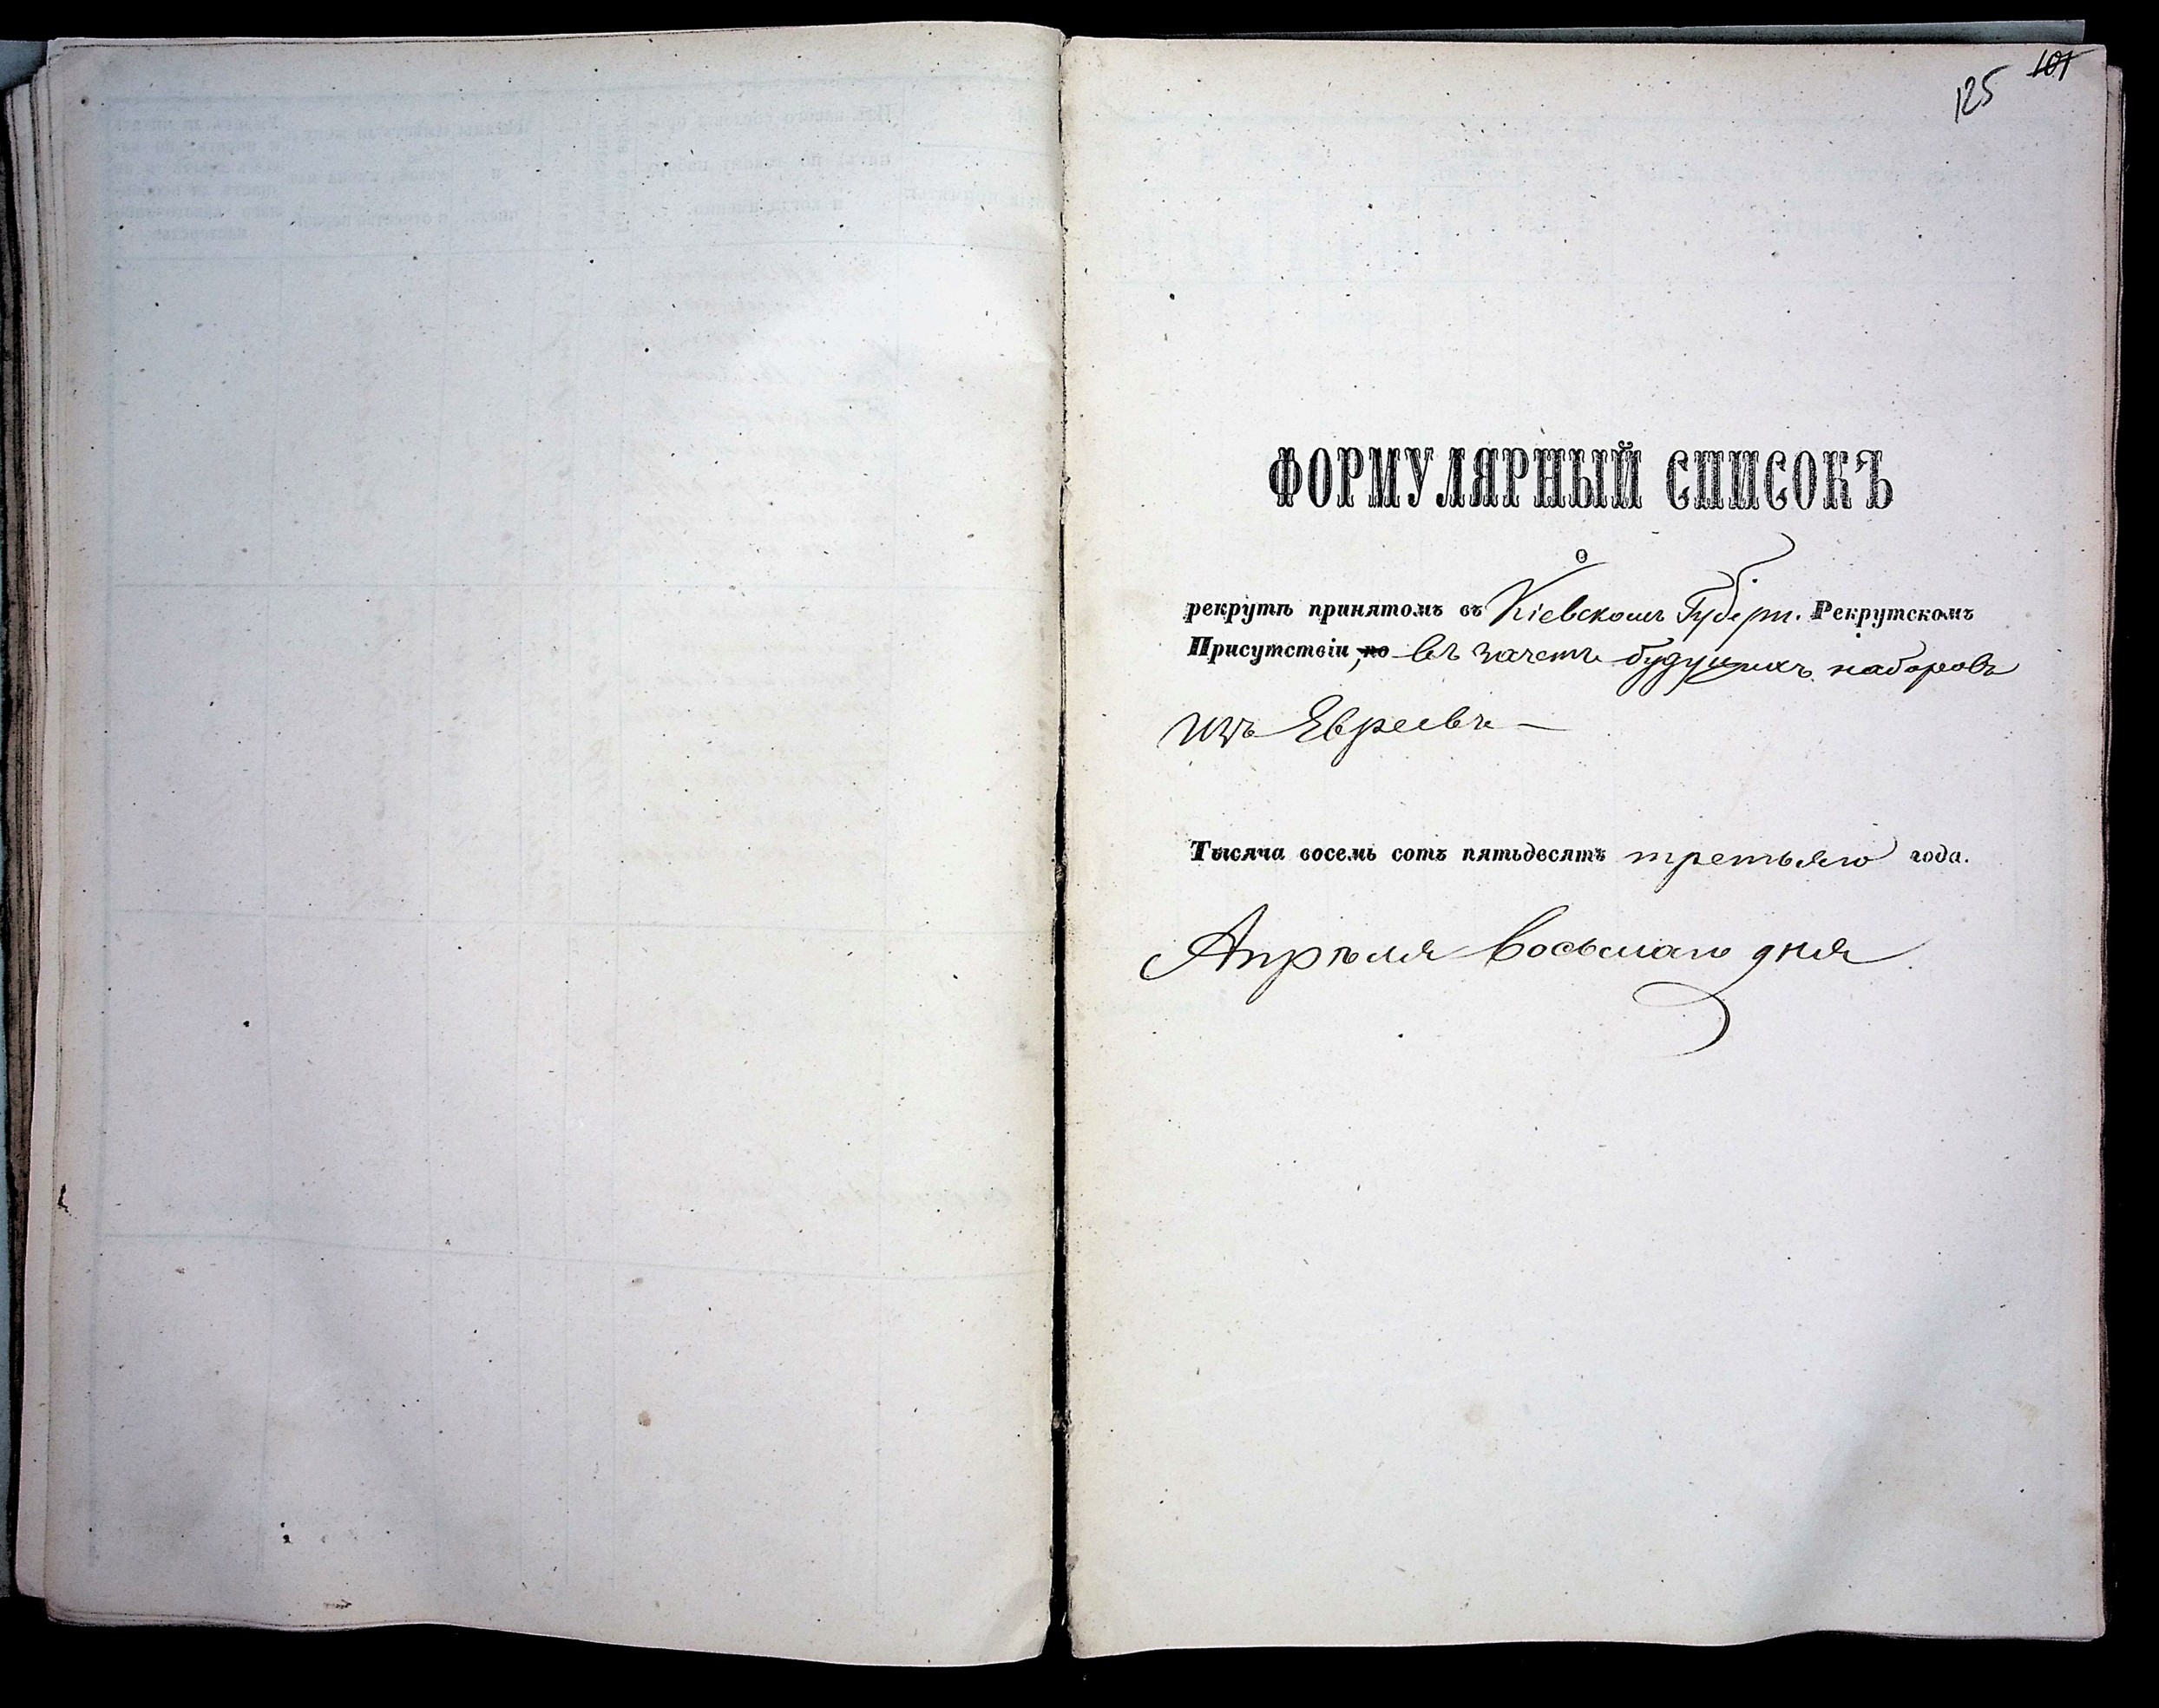 125 101
ФОРМУЛЯРНЫЙ СПИСОКЪ
о
рекрутѣ принятомъ въ Кіевскомъ Губерн. Рекрутскомъ
Присутствіи, по въ зачетъ будущихъ наборовъ
изъ Евреевъ —
Тысяча восемь сотъ пятьдесятъ третьяго года.
Апрѣля восьмаго дня